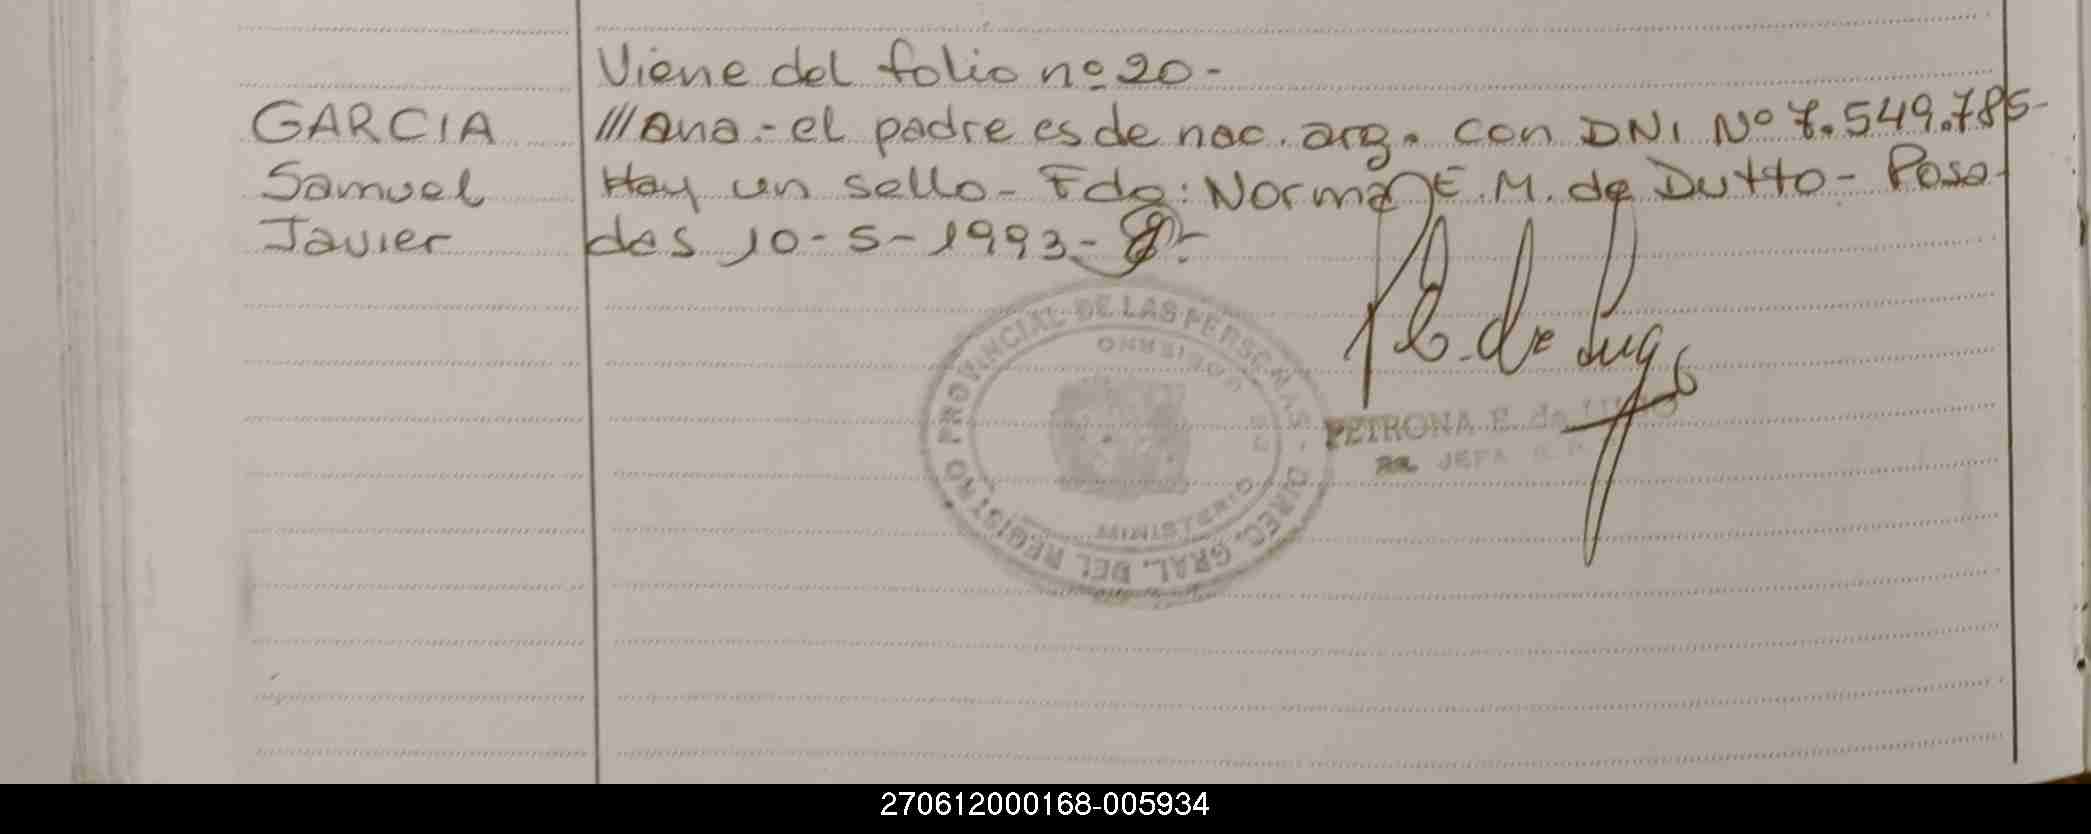 Viene del folio nº 20-
GARCIA
Samuel
Javier
///ana.- el padre es de nac. arg. con DNI Nº 7.549.785-
Hay un sello- Fdo: Norma E. M. de Dutto- Posa-
das 10-5-1993-
P E. de Lugo
PETRONA E. de LUGO
JEFA
DIREC. GRAL. DEL REGISTRO PROVINCIAL DE LAS PERSONAS
MINISTERIO DE GOBIERNO
270612000168-005934